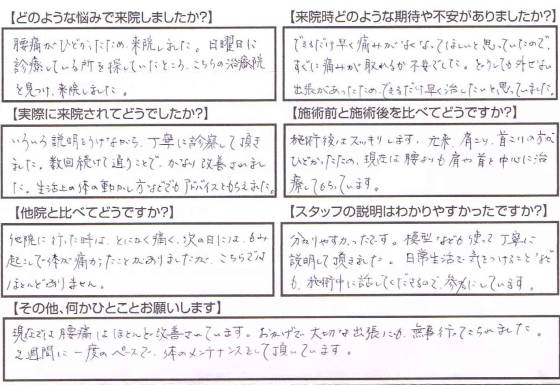 【どのような悩みで来院しましたか?】
腰痛がひどかったため、来院しました。日曜日に
診療している所を探していたところ、こちらの治療院
を見つけ、来院しました。
【来院時どのような期待や不安がありましたか?】
できるだけ早く痛みがなくなってほしいと思っていたので、
すぐに痛みが取れるか不安でした。どうしても外せない
出張があったため、できるだけ早く治したいと思っていました。
【実際に来院されてどうでしたか?】
いろいろ説明をうけながら、丁寧に診療して頂き
ました。数回続けて通うことで、かなり改善されまし
た。生活上の体の動かし方などでもアドバイスをもらえました。
【施術前と施術後を比べてどうですか?】
施術後はスッキリします。元来、肩こり、首こりの方が
ひどかったため、現在は腰よりも肩や首を中心に治
療してもらっています。
【他院と比べてどうですか?】
他院に行った時は、とにかく痛く、次の日には、もみ
起こしで体が痛かったことがありましたが、こちらでは
ほとんどありません。
【スタッフの説明はわかりやすかったですか?】
分かりやすかったです。模型なども使って丁寧に
説明して頂きました。日常生活で気をつけることなど
も、施術中に話してくださるので、参考にしています。
【その他、何かひとことお願いします】
現在では腰痛はほとんど改善されています。おかげで、大切な出張にも、無事行ってこられました。
2週間に一度のペースで、体のメンテナンスをして頂いています。